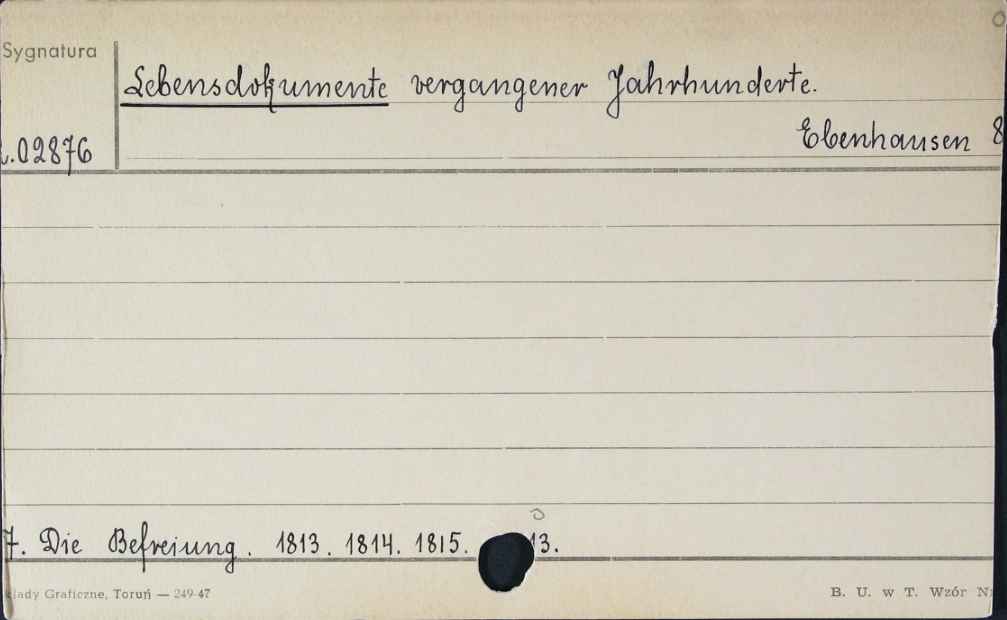 Sygnatura
Lebensdokumente vergangener Jahrhunderte.
Ebenhausen 8
.02876
7. Die Befreiung. 1813. 1814. 1815. 13.
łady Graficzne, Toruń — 249-47
B. U. w T. Wzór N